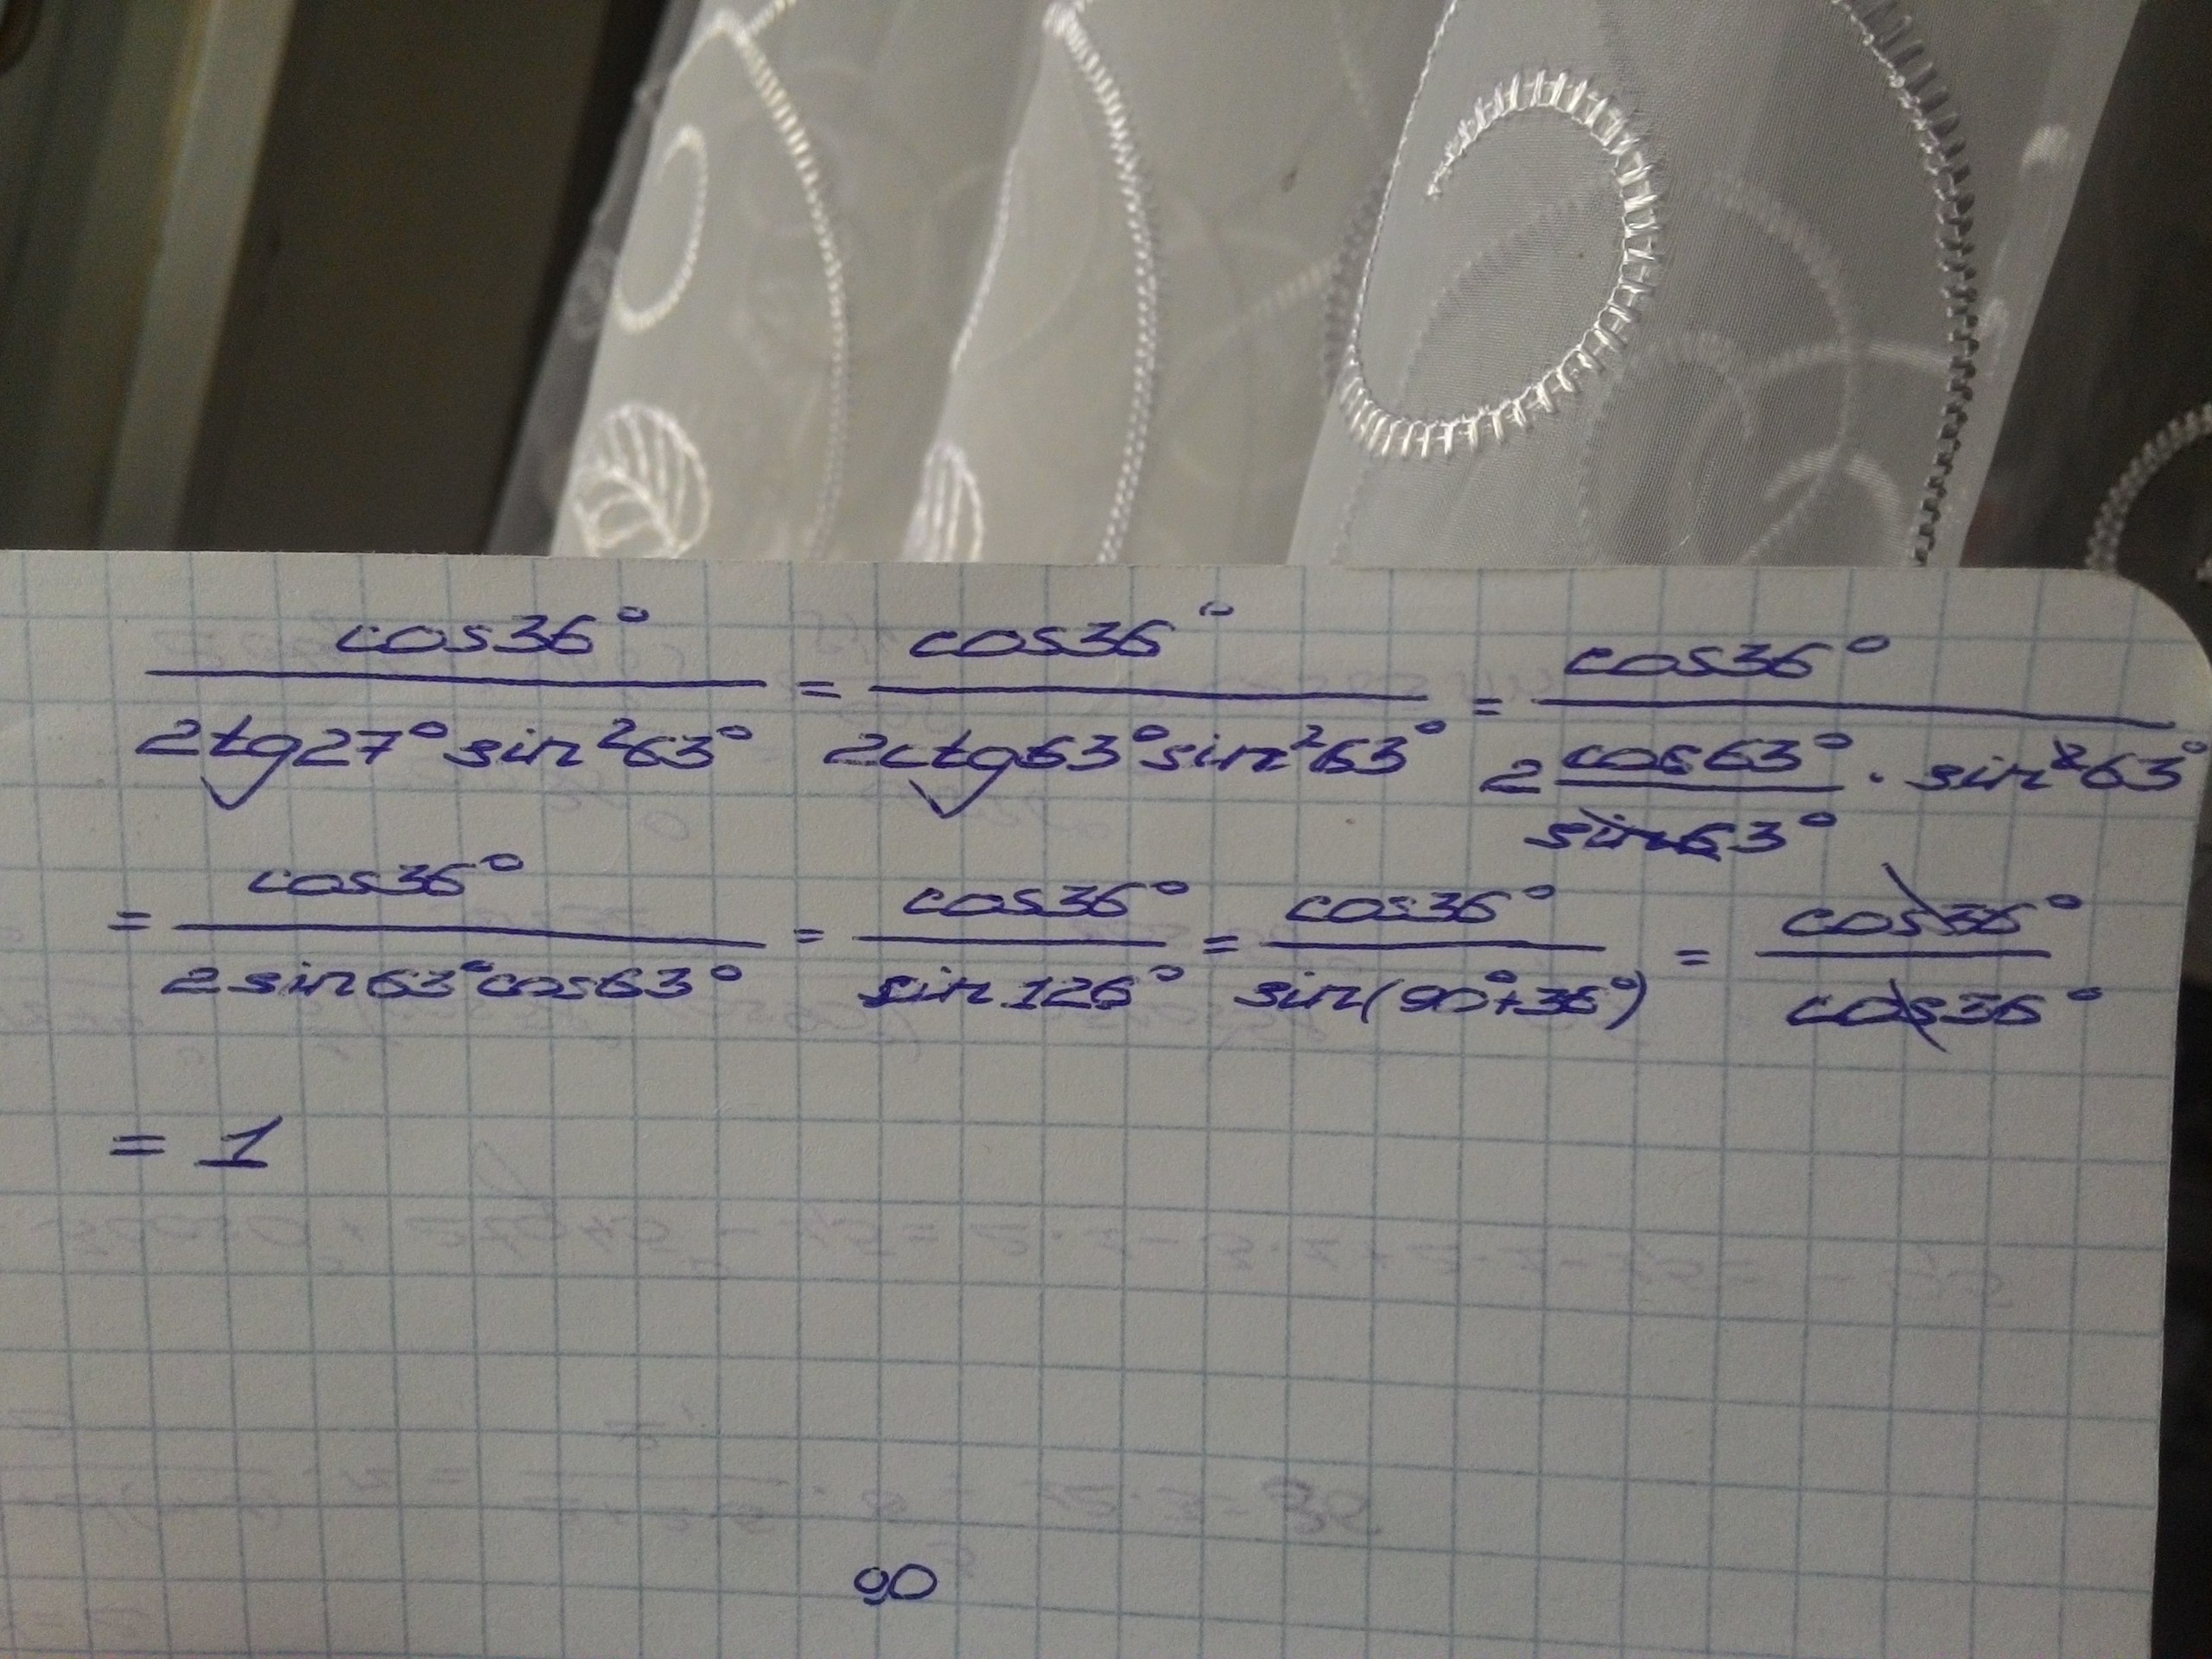 cos36° / 2tg27° sin²63° = cos36° / 2ctg63° sin²63° = cos36° / 2 cos63° / sin63° · sin²63°
= cos36° / 2sin63°cos63° = cos36° / sin126° = cos36° / sin(90°+36°) = cos36° / cos36°
= 1
90